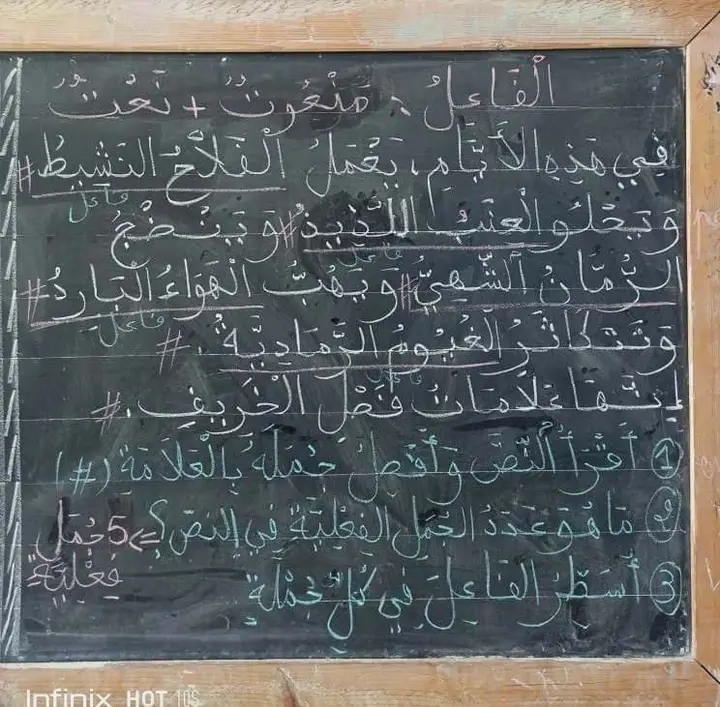 الْفَاعِلُ : مَنْعُوتٌ + نَعْتٌ
فِي هَذِهِ الأَيَّامِ، يَعْمَلُ الْفَلاَّحُ النَشِيطُ #
فاعل
وَيَحْلُو الْعِنَبُ اللَّذِيذُ # وَيَنْضُجُ
فاعل
الرُّمَّانُ الشَّهِيُّ # وَيَهُبُّ الْهَوَاءُ الْبَارِدُ #
فاعل
وَتَتَكَاثَرُ الْغُيُومُ الرَّمَادِيَّةُ. #
فاعل
إِنَّهَا عَلاَمَاتُ فَصْلِ الْخَرِيفِ. #
① أَقْرَأُ النَّصَّ وَأَفْصِلُ جُمَلَهُ بِالْعَلاَمَةِ (#)
② مَا هُوَ عَدَدُ الجُمَلِ الفِعْلِيَّةِ فِي النَصِّ؟ => 5 جُمَلٍ
فِعْلِيَّةٍ
③ أُسَطِّرُ الفَاعِلَ فِي كُلِّ جُمْلَةٍ
Infinix HOT 10S